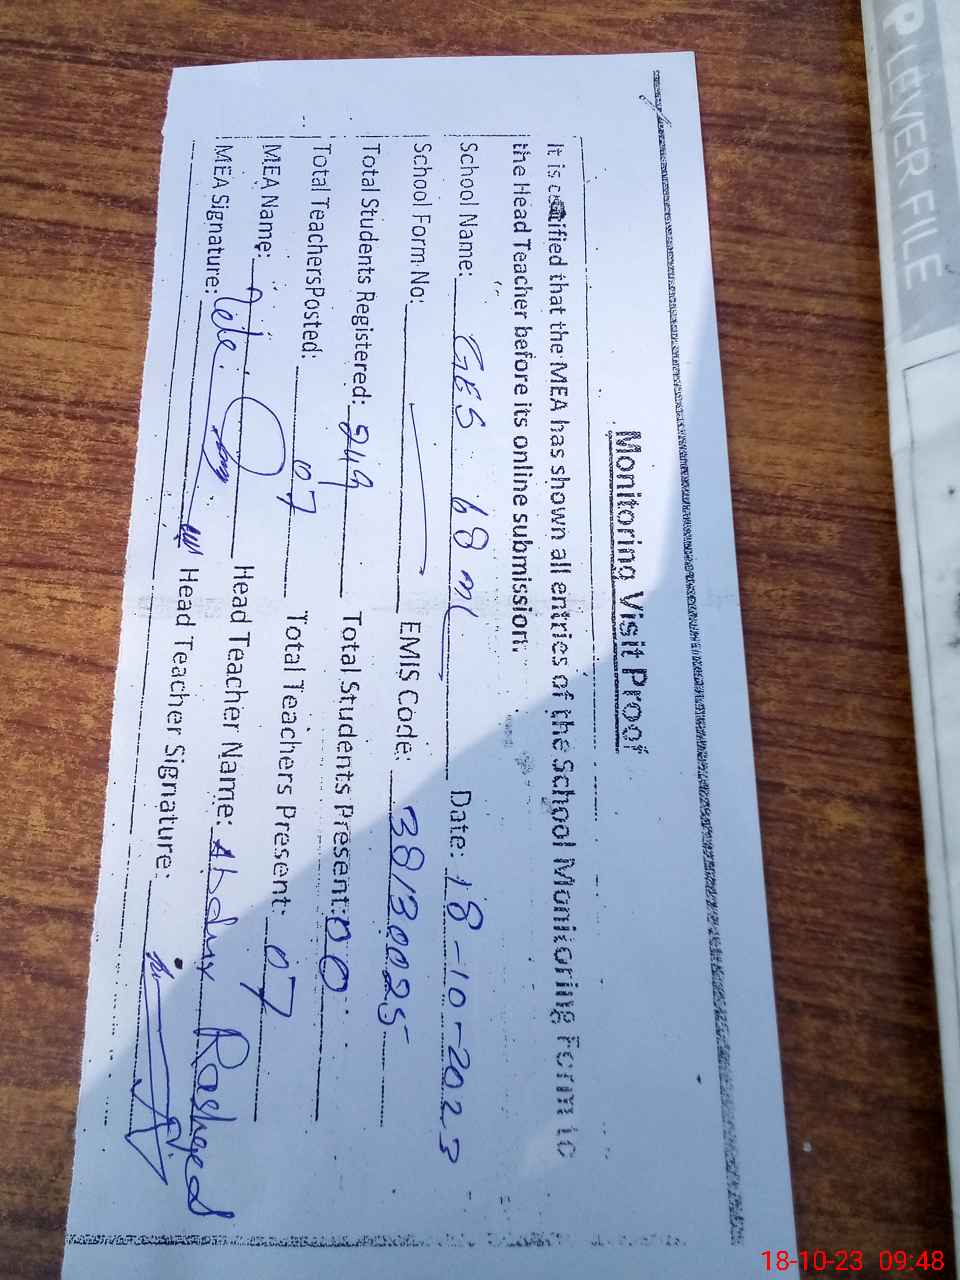 Monitoring Visit Proof
It is certified that the MEA has shown all entries of the School Monitoring Form to
the Head Teacher before its online submission.
School Name: GES 68 ml Date: 18-10-2023
School Form No: EMIS Code: 38130025
Total Students Registered: 249 Total Students Present: 00
Total Teachers Posted: 07 Total Teachers Present: 07
MEA Name: Head Teacher Name: Abdur Rasheed
MEA Signature: Head Teacher Signature:
P LEVER FILE
18-10-23 09:48